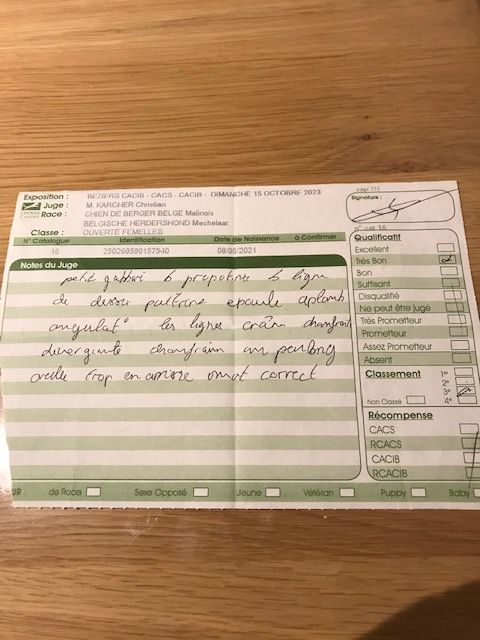 page 775
Exposition : BEZIERS CACIB - CACS - CACIB - DIMANCHE 15 OCTOBRE 2023
Juge : M. KARCHER Christian
Race : CHIEN DE BERGER BELGE Malinois
BELGISCHE HERDERSHOND Mechelaar
Classe : OUVERTE FEMELLES
Signature :
n° cat 16
N° Catalogue Identification Date de Naissance à Confirmer
16 250269590157540 08/05/2021
Notes du Juge
petit gabari b proportinée b ligne
de dessus poitrine epaule aplomb
angulat° les lignes crâne chanfrain
divergente chanfrain un peu long
oreille trop en arrière mvt correct
Qualificatif
Excellent
Très Bon
Bon
Suffisant
Disqualifié
Ne peut être jugé
Très Prometteur
Prometteur
Assez Prometteur
Absent
Classement 1°
2°
3°
Non Classé 4°
Récompense
CACS
RCACS
CACIB
RCACIB
UR de Race Sexe Opposé Jeune Vétéran Puppy Baby